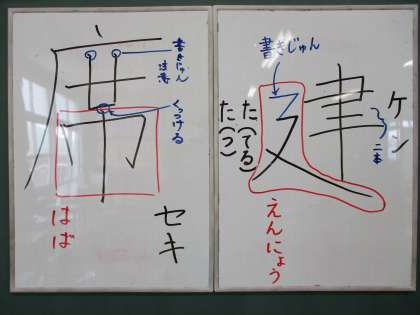 建
ケン
二本
書きじゅん
た(てる)
た(つ)
えんにょう
席
セキ
書きじゅん
注意
くっつける
はば